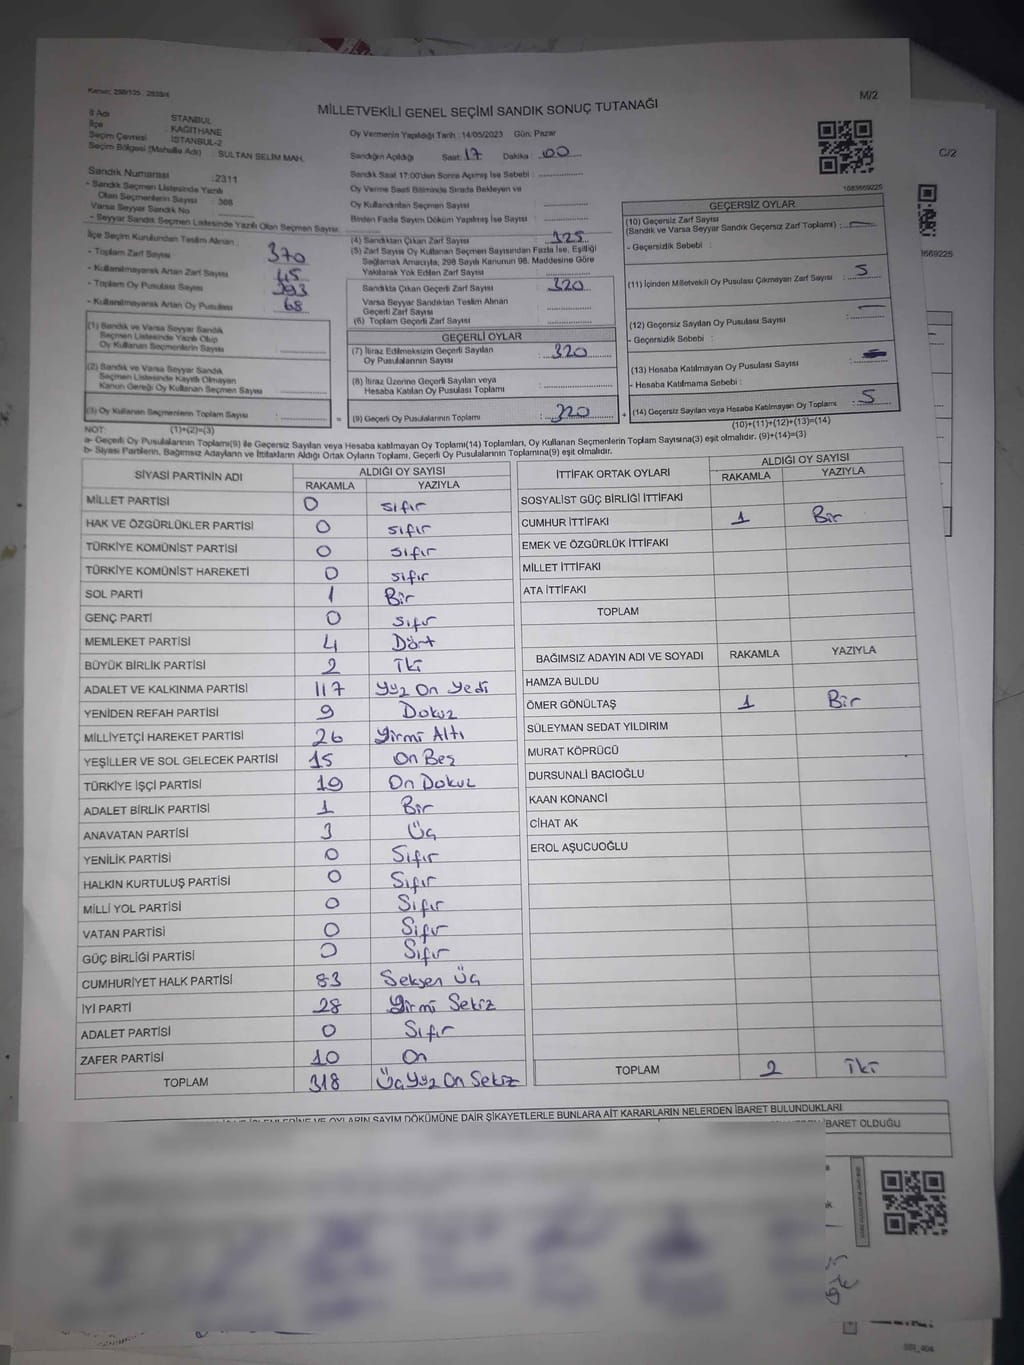 Kanun: 298/105, 2839/4
M/2
MİLLETVEKİLİ GENEL SEÇİMİ SANDIK SONUÇ TUTANAĞI
C/2
İl Adı : İSTANBUL
İlçe : KAĞITHANE
Seçim Çevresi : İSTANBUL-2
Seçim Bölgesi (Mahalle Adı) : SULTAN SELİM MAH.
Oy Vermenin Yapıldığı Tarih : 14/05/2023 Gün: Pazar
Sandığın Açıldığı Saat: 17 Dakika : 00
Sandık Numarası : 2311
- Sandık Seçmen Listesinde Yazılı
Olan Seçmenlerin Sayısı : 368
Varsa Seyyar Sandık No
- Seyyar Sandık Seçmen Listesinde Yazılı Olan Seçmen Sayısı:
Sandık Saat 17:00'den Sonra Açılmış İse Sebebi :
Oy Verme Saati Bitiminde Sırada Bekleyen ve
Oy Kullandırılan Seçmen Sayısı
Birden Fazla Sayım Döküm Yapılmış İse Sayısı :
1083669225
İlçe Seçim Kurulundan Teslim Alınan
- Toplam Zarf Sayısı : 370
- Kullanılmayarak Artan Zarf Sayısı : 45
- Toplam Oy Pusulası Sayısı : 393
- Kullanılmayarak Artan Oy Pusulası : 68
(1) Sandık ve Varsa Seyyar Sandık
Seçmen Listesinde Yazılı Olup
Oy Kullanan Seçmenlerin Sayısı :
(2) Sandık ve Varsa Seyyar Sandık
Seçmen Listesinde Kayıtlı Olmayan
Kanun Gereği Oy Kullanan Seçmen Sayısı :
(3) Oy Kullanan Seçmenlerin Toplam Sayısı :
(1)+(2)=(3)
(4) Sandıktan Çıkan Zarf Sayısı : 325
(5) Zarf Sayısı Oy Kullanan Seçmen Sayısından Fazla İse, Eşitliği
Sağlamak Amacıyla, 298 Sayılı Kanunun 98. Maddesine Göre
Yakılarak Yok Edilen Zarf Sayısı
Sandıkta Çıkan Geçerli Zarf Sayısı : 320
Varsa Seyyar Sandıktan Teslim Alınan
Geçerli Zarf Sayısı
(6) Toplam Geçerli Zarf Sayısı
GEÇERLİ OYLAR
(7) İtiraz Edilmeksizin Geçerli Sayılan
Oy Pusulalarının Sayısı : 320
(8) İtiraz Üzerine Geçerli Sayılan veya
Hesaba Katılan Oy Pusulası Toplamı
= (9) Geçerli Oy Pusulalarının Toplamı : 320
GEÇERSİZ OYLAR
(10) Geçersiz Zarf Sayısı
(Sandık ve Varsa Seyyar Sandık Geçersiz Zarf Toplamı) : —
- Geçersizlik Sebebi :
(11) İçinden Milletvekili Oy Pusulası Çıkmayan Zarf Sayısı : 5
(12) Geçersiz Sayılan Oy Pusulası Sayısı : —
- Geçersizlik Sebebi :
(13) Hesaba Katılmayan Oy Pusulası Sayısı :
- Hesaba Katılmama Sebebi :
+ (14) Geçersiz Sayılan veya Hesaba Katılmayan Oy Toplamı : 5
(10)+(11)+(12)+(13)=(14)
NOT:
a- Geçerli Oy Pusulalarının Toplamı(9) ile Geçersiz Sayılan veya Hesaba katılmayan Oy Toplamı(14) Toplamları, Oy Kullanan Seçmenlerin Toplam Sayısına(3) eşit olmalıdır. (9)+(14)=(3)
b- Siyasi Partilerin, Bağımsız Adayların ve İttifakların Aldığı Ortak Oyların Toplamı, Geçerli Oy Pusulalarının Toplamına(9) eşit olmalıdır.
SİYASİ PARTİNİN ADI ALDIĞI OY SAYISI
RAKAMLA YAZIYLA
MİLLET PARTİSİ 0 sıfır
HAK VE ÖZGÜRLÜKLER PARTİSİ 0 sıfır
TÜRKİYE KOMÜNİST PARTİSİ 0 sıfır
TÜRKİYE KOMÜNİST HAREKETİ 0 sıfır
SOL PARTİ 1 Bir
GENÇ PARTİ 0 sıfır
MEMLEKET PARTİSİ 4 Dört
BÜYÜK BİRLİK PARTİSİ 2 İki
ADALET VE KALKINMA PARTİSİ 117 Yüz On Yedi
YENİDEN REFAH PARTİSİ 9 Dokuz
MİLLİYETÇİ HAREKET PARTİSİ 26 Yirmi Altı
YEŞİLLER VE SOL GELECEK PARTİSİ 15 On Beş
TÜRKİYE İŞÇİ PARTİSİ 19 On Dokuz
ADALET BİRLİK PARTİSİ 1 Bir
ANAVATAN PARTİSİ 3 Üç
YENİLİK PARTİSİ 0 Sıfır
HALKIN KURTULUŞ PARTİSİ 0 Sıfır
MİLLİ YOL PARTİSİ 0 Sıfır
VATAN PARTİSİ 0 Sıfır
GÜÇ BİRLİĞİ PARTİSİ 0 Sıfır
CUMHURİYET HALK PARTİSİ 83 Seksen Üç
İYİ PARTİ 28 Yirmi Sekiz
ADALET PARTİSİ 0 Sıfır
ZAFER PARTİSİ 10 On
TOPLAM 318 Üç Yüz On Sekiz
İTTİFAK ORTAK OYLARI ALDIĞI OY SAYISI
RAKAMLA YAZIYLA
SOSYALİST GÜÇ BİRLİĞİ İTTİFAKI
CUMHUR İTTİFAKI 1 Bir
EMEK VE ÖZGÜRLÜK İTTİFAKI
MİLLET İTTİFAKI
ATA İTTİFAKI
TOPLAM
BAĞIMSIZ ADAYIN ADI VE SOYADI RAKAMLA YAZIYLA
HAMZA BULDU
ÖMER GÖNÜLTAŞ 1 Bir
SÜLEYMAN SEDAT YILDIRIM
MURAT KÖPRÜCÜ
DURSUNALİ BACIOĞLU
KAAN KONANCİ
CİHAT AK
EROL AŞUCUOĞLU
TOPLAM 2 İki
OYLARIN SAYIM DÖKÜMÜNE DAİR ŞİKAYETLERLE BUNLARA AİT KARARLARIN NELERDEN İBARET BULUNDUKLARI
İBARET OLDUĞU